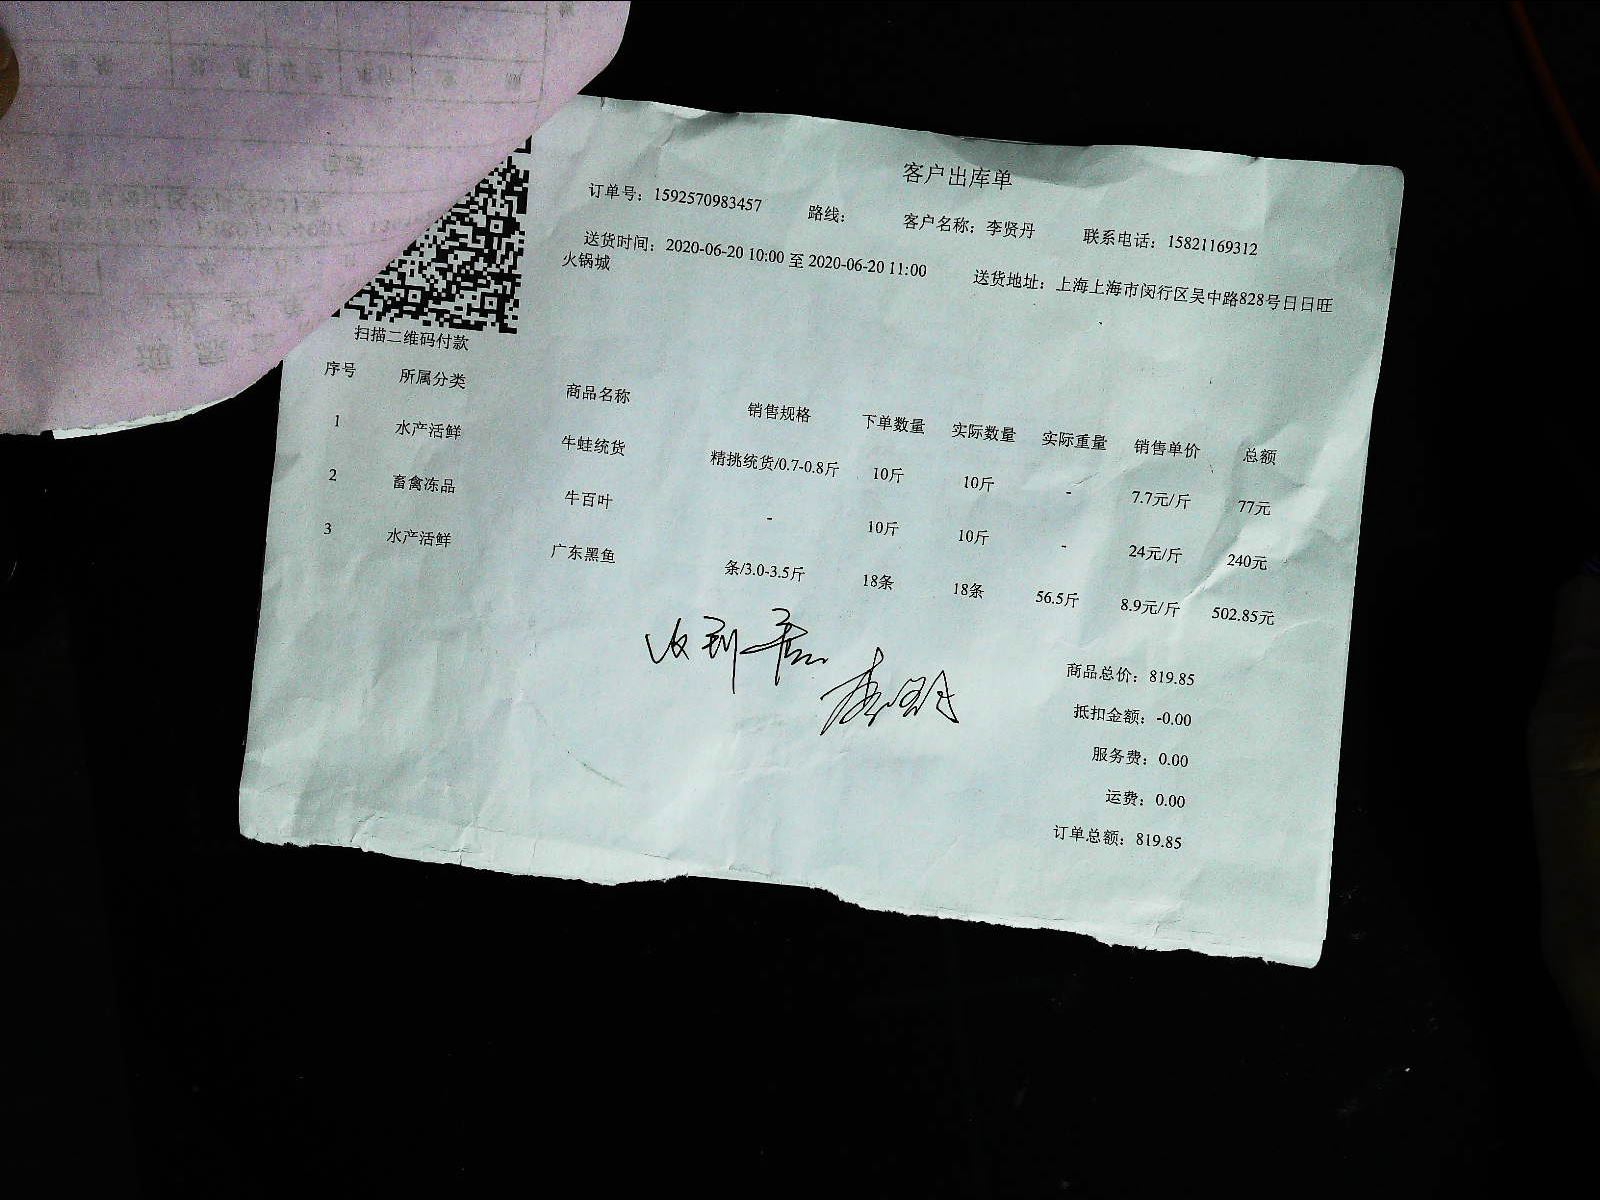 客户出库单
订单号：1592570983457 路线： 客户名称：李贤丹 联系电话：15821169312
送货时间：2020-06-20 10:00 至 2020-06-20 11:00 送货地址：上海上海市闵行区吴中路828号日日旺
火锅城
扫描二维码付款
序号 所属分类 商品名称 销售规格 下单数量 实际数量 实际重量 销售单价 总额
1 水产活鲜 牛蛙统货 精挑统货/0.7-0.8斤 10斤 10斤 - 7.7元/斤 77元
2 畜禽冻品 牛百叶 - 10斤 10斤 - 24元/斤 240元
3 水产活鲜 广东黑鱼 条/3.0-3.5斤 18条 18条 56.5斤 8.9元/斤 502.85元
收到
商品总价：819.85
抵扣金额：-0.00
服务费：0.00
运费：0.00
订单总额：819.85